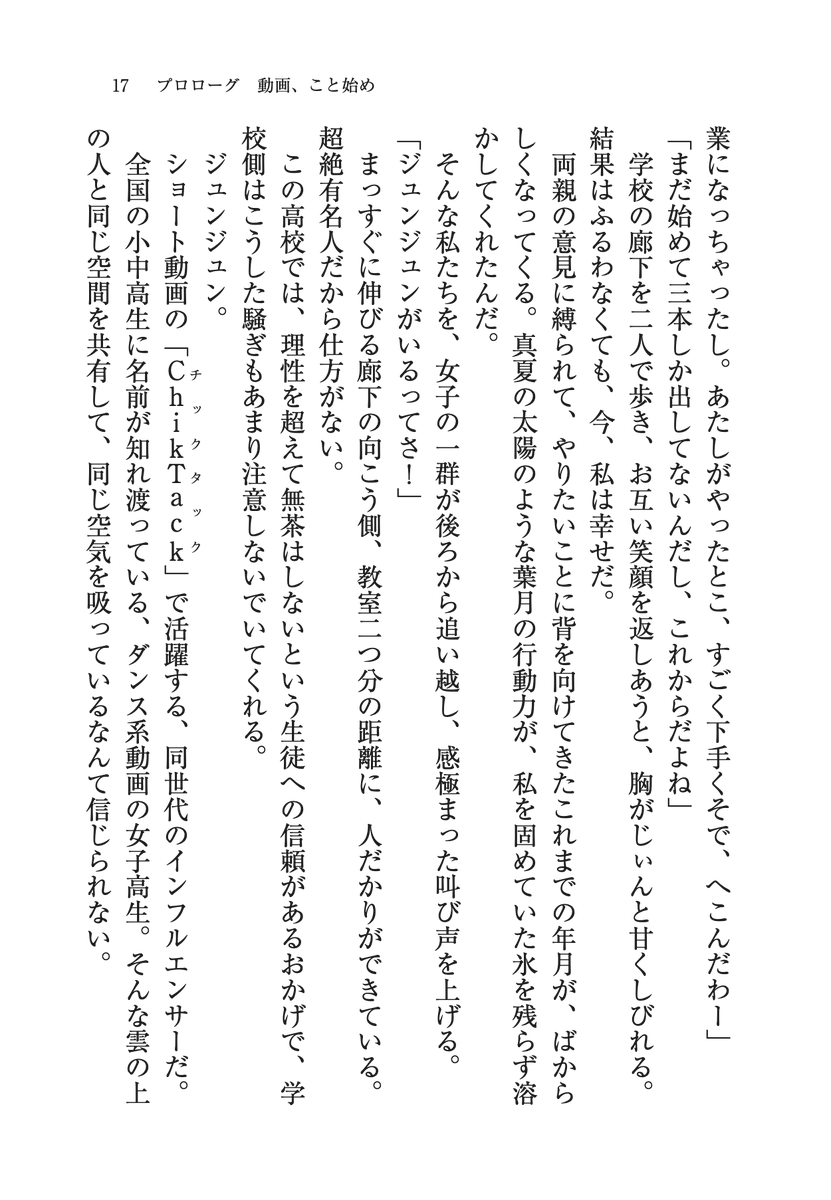 17　プロローグ　動画、こと始め
業になっちゃったし。あたしがやったとこ、すごく下手くそで、へこんだわー」
「まだ始めて三本しか出してないんだし、これからだよね」
　学校の廊下を二人で歩き、お互い笑顔を返しあうと、胸がじぃんと甘くしびれる。
結果はふるわなくても、今、私は幸せだ。
　両親の意見に縛られて、やりたいことに背を向けてきたこれまでの年月が、ばから
しくなってくる。真夏の太陽のような葉月の行動力が、私を固めていた氷を残らず溶
かしてくれたんだ。
　そんな私たちを、女子の一群が後ろから追い越し、感極まった叫び声を上げる。
「ジュンジュンがいるってさ！」
　まっすぐに伸びる廊下の向こう側、教室二つ分の距離に、人だかりができている。
超絶有名人だから仕方がない。
　この高校では、理性を超えて無茶はしないという生徒への信頼があるおかげで、学
校側はこうした騒ぎもあまり注意しないでいてくれる。
　ジュンジュン。
　ショート動画の「ChikTack」で活躍する、同世代のインフルエンサーだ。
チックタック
　全国の小中高生に名前が知れ渡っている、ダンス系動画の女子高生。そんな雲の上
の人と同じ空間を共有して、同じ空気を吸っているなんて信じられない。